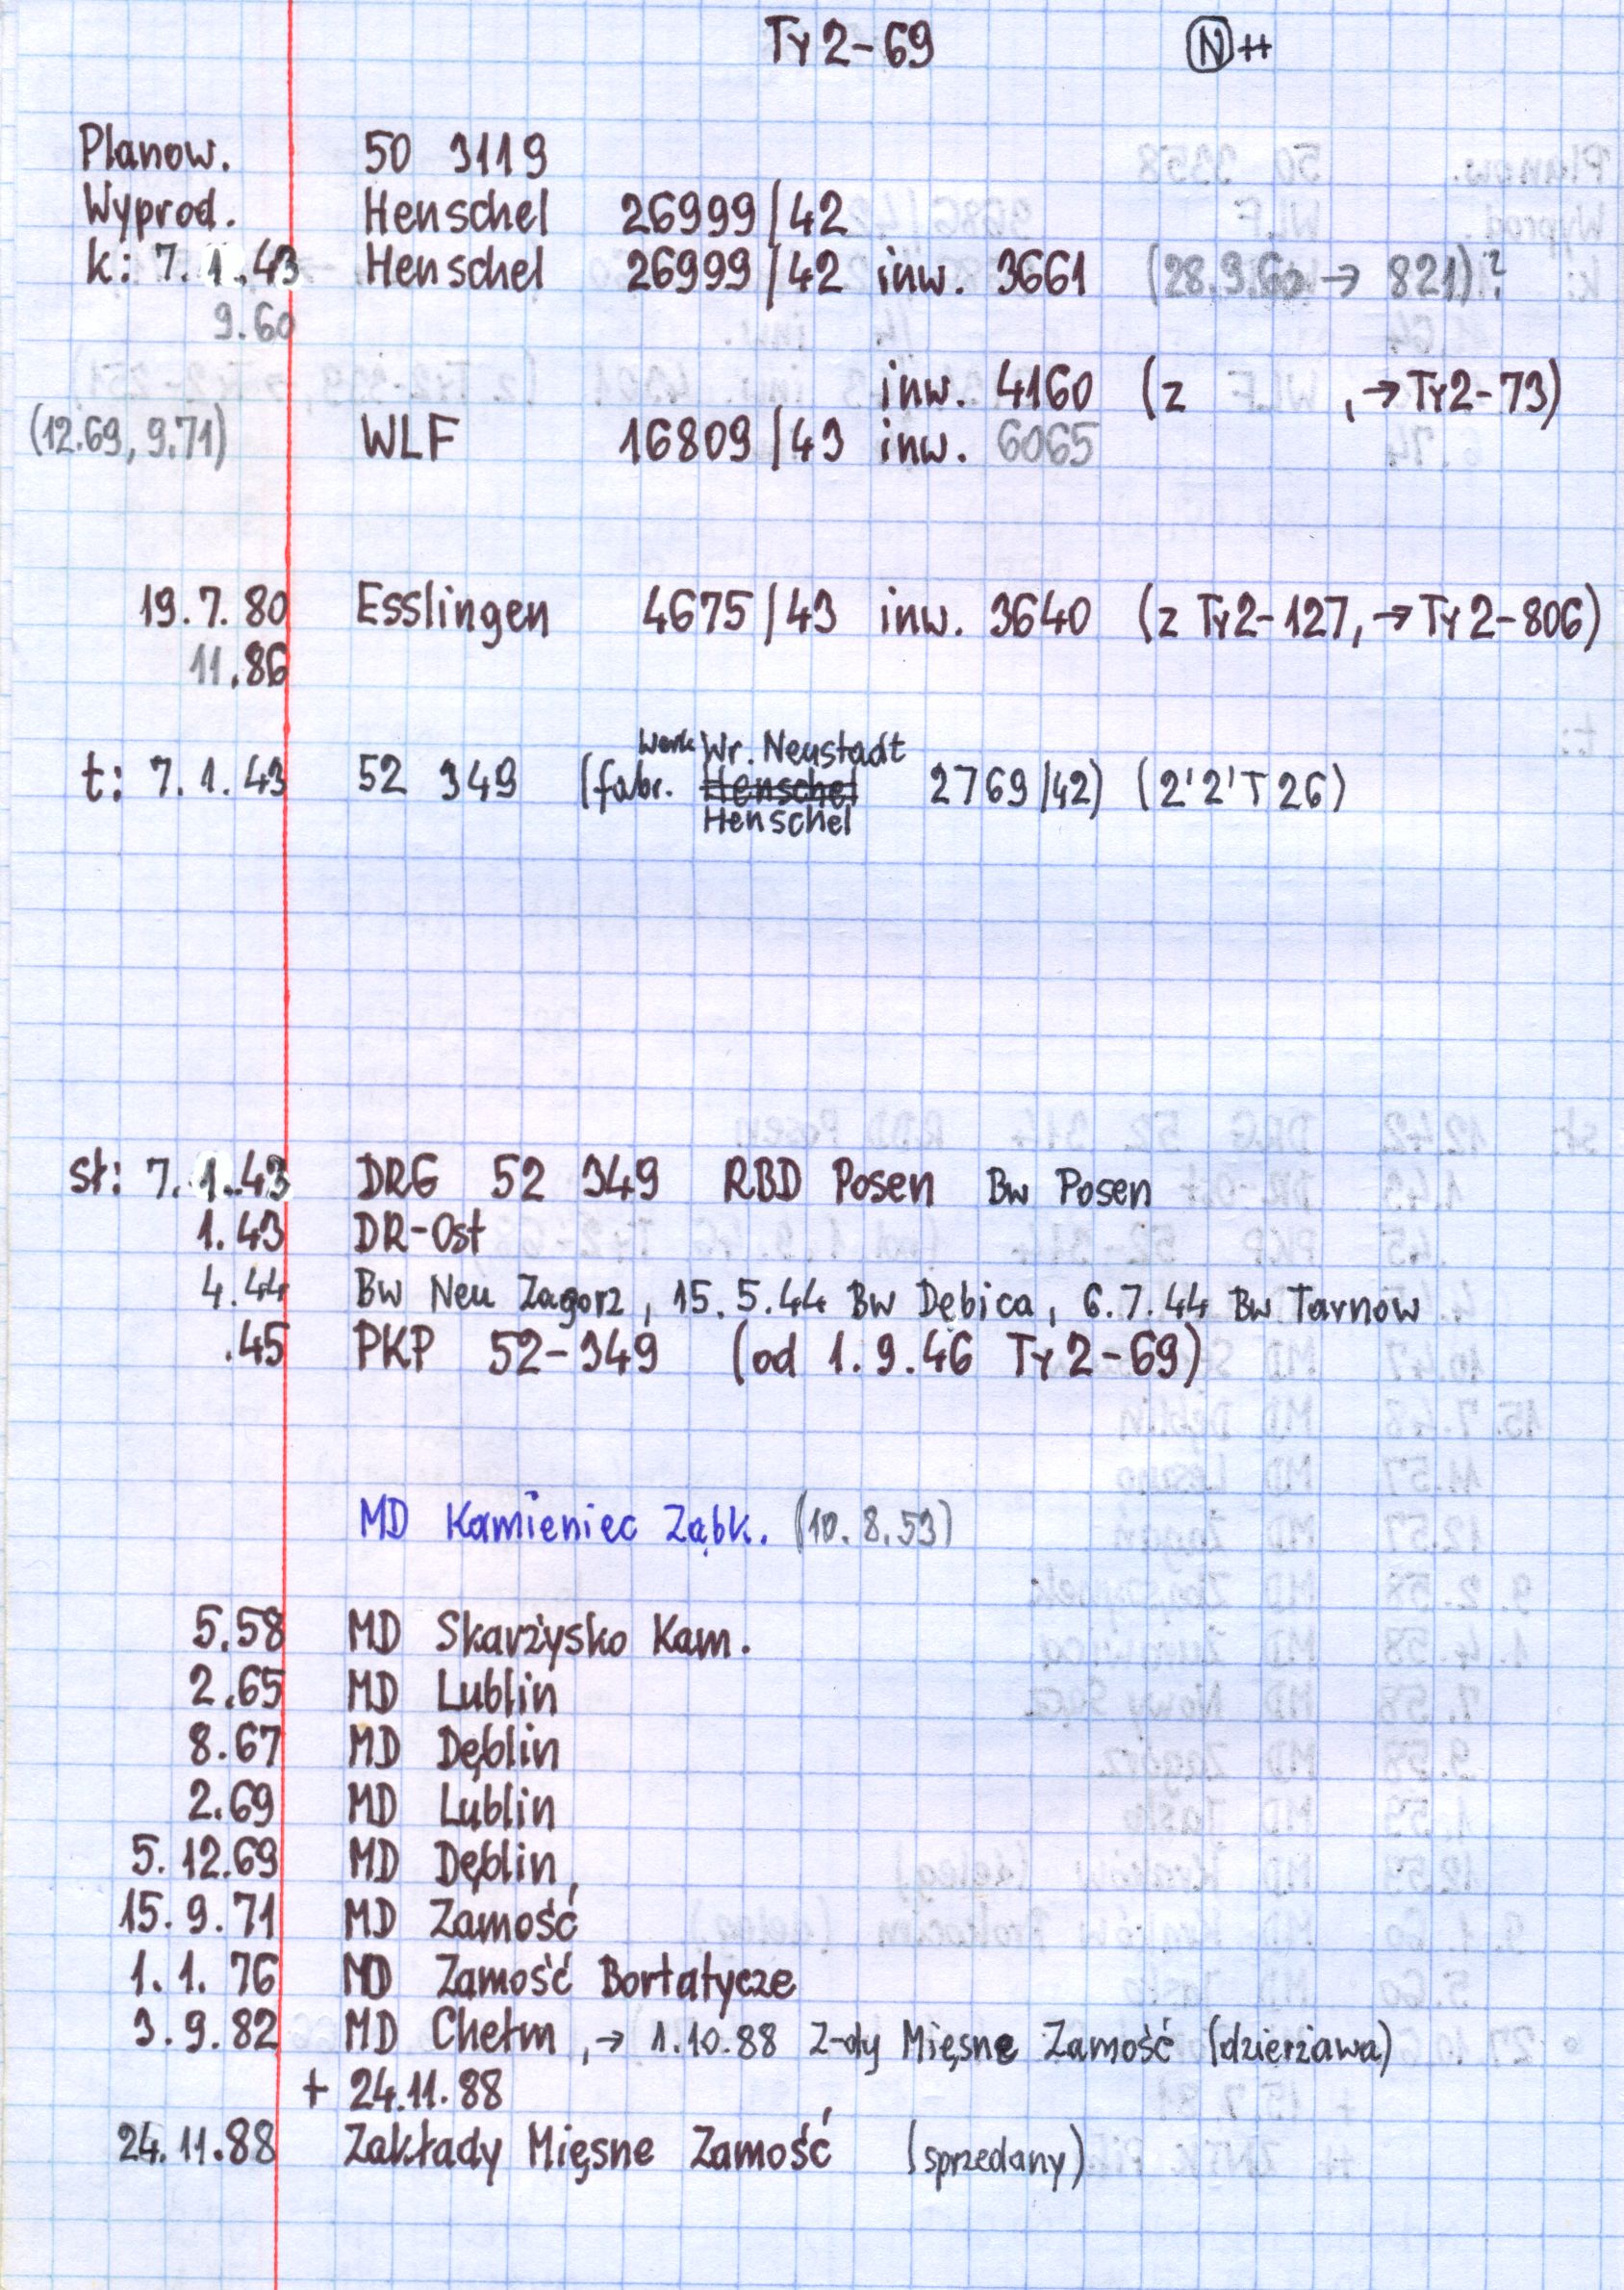 Ty2-69 Ⓝ++
Planow. 50 3119
Wyprod. Henschel 26999/42
k: 7.1.43 Henschel 26999/42 inw. 3661 (28.9.60 → 821)?
9.60
inw. 4160 (z , → Ty2-73)
(12.69, 9.71) WLF 16809/43 inw. 6065
19.7.80 Esslingen 4675/43 inw. 3640 (z Ty2-127, → Ty2-806)
11.86
Werk Wr. Neustadt
t: 7.1.43 52 349 (fabr. Henschel 2769/42) (2'2'T26)
Henschel
st: 7.1.43 DRG 52 349 RBD Posen Bw Posen
1.43 DR-Ost
4.44 Bw Neu Zagorz, 15.5.44 Bw Dębica, 6.7.44 Bw Tarnow
.45 PKP 52-349 (od 1.9.46 Ty2-69)
MD Kamieniec Ząbk. (10.8.53)
5.58 MD Skarżysko Kam.
2.65 MD Lublin
8.67 MD Dęblin
2.69 MD Lublin
5.12.69 MD Dęblin
15.9.71 MD Zamość
1.1.76 MD Zamość Bortatycze
3.9.82 MD Chełm, → 1.10.88 Z-dy Mięsne Zamość (dzierżawa)
+ 24.11.88
24.11.88 Zakłady Mięsne Zamość (sprzedany)